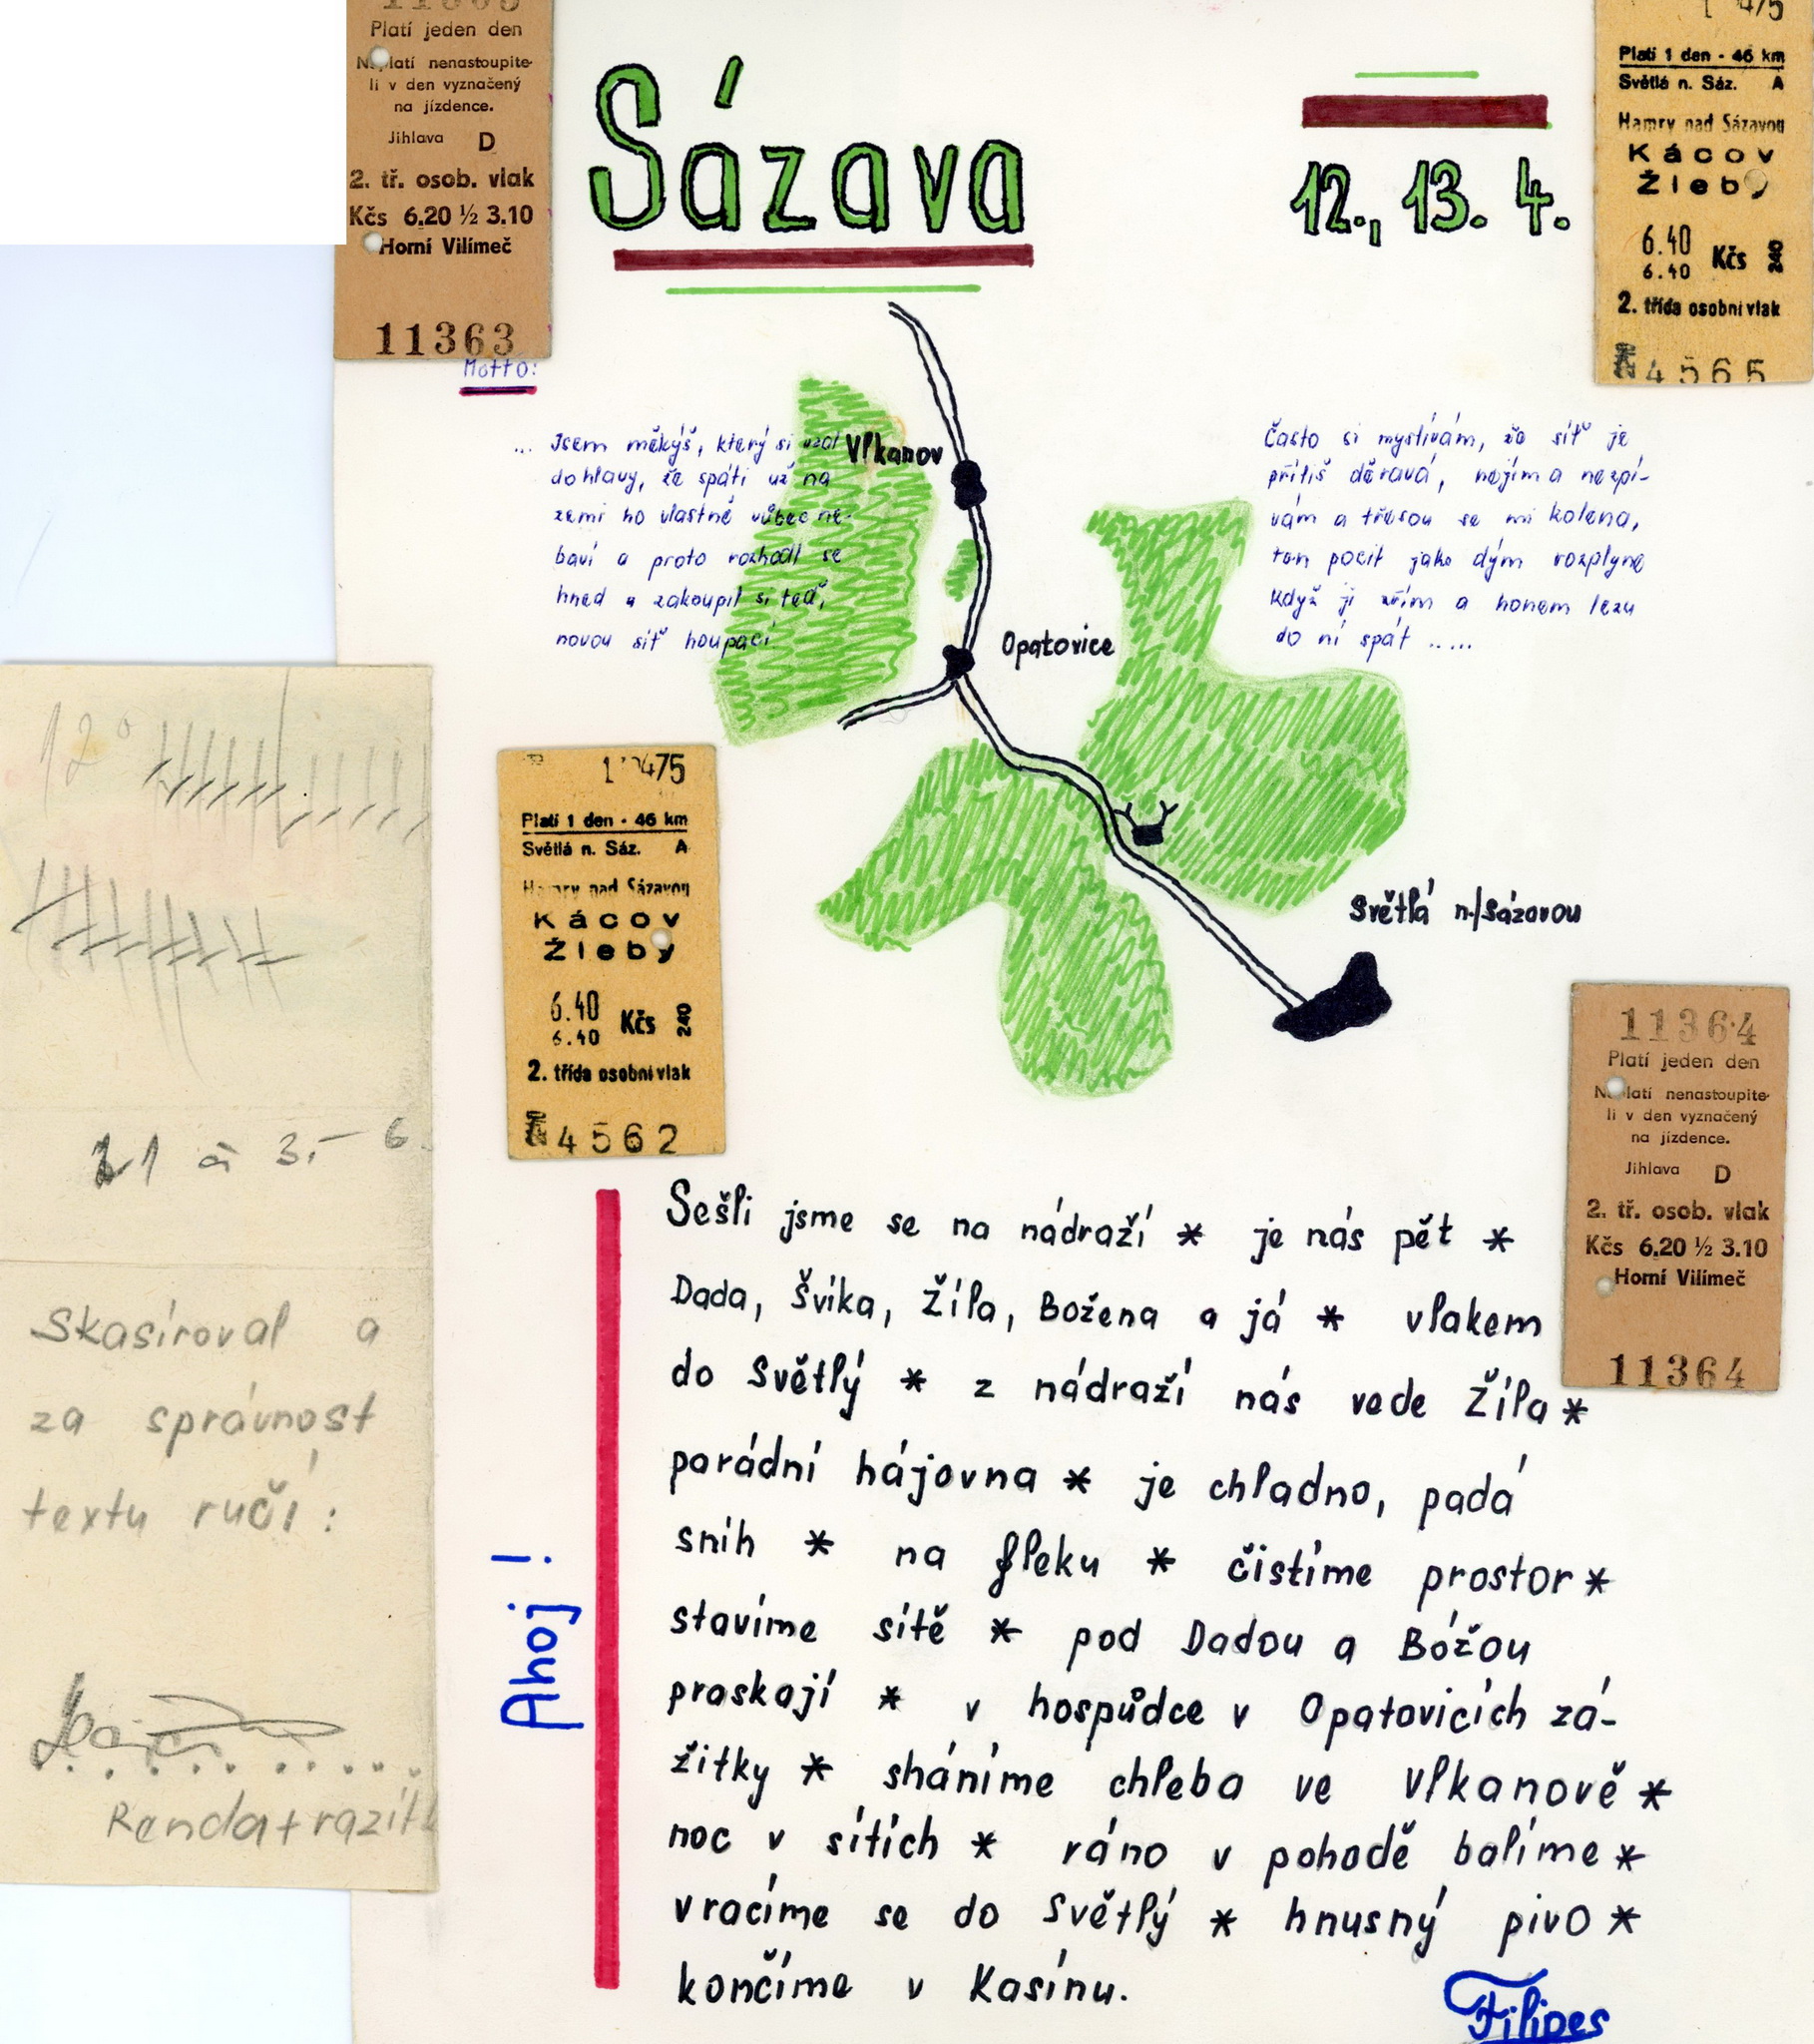 11363
Platí jeden den
Neplatí nenastoupite-
li v den vyznačený
na jízdence.
Jihlava D
2. tř. osob. vlak
Kčs 6.20 ½ 3.10
Horní Vilímeč
11363
Sázava
12., 13. 4.
475
Platí 1 den - 46 km
Světlá n. Sáz. A
Hamry nad Sázavou
Kácov
Žleby
6.40
6.40 Kčs 240
2. třída osobní vlak
4565
Motto:
... Jsem měkýš, který si vzal
do hlavy, že spáti už na
zemi ho vlastně vůbec ne-
baví a proto rozhodl se
hned a zakoupil si teď,
novou síť houpací
Často si myslívám, že síť je
příliš děravá, nejím a nezpí-
vám a třesou se mi kolena,
ten pocit jako dým rozplyne
když ji zřím a honem lezu
do ní spát .....
Vlkanov
Opatovice
Světlá n/Sázavou
12°
475
Platí 1 den - 46 km
Světlá n. Sáz. A
Hamry nad Sázavou
Kácov
Žleby
6.40
6.40 Kčs 240
2. třída osobní vlak
4562
21 à 3,- 6
Skasíroval a
za správnost
textu ručí:
Renda + razít
11364
Platí jeden den
Neplatí nenastoupite-
li v den vyznačený
na jízdence.
Jihlava D
2. tř. osob. vlak
Kčs 6.20 ½ 3.10
Horní Vilímeč
11364
Ahoj!
Sešli jsme se na nádraží * je nás pět *
Dada, Švika, Žíla, Božena a já * vlakem
do Světlý * z nádraží nás vede Žíla *
parádní hájovna * je chladno, padá
sníh * na fleku * čistíme prostor *
stavíme sítě * pod Dadou a Bóžou
praskají * v hospůdce v Opatovicích zá-
žitky * sháníme chleba ve Vlkanově *
noc v sítích * ráno v pohodě balíme *
vracíme se do Světlý * hnusný pivo *
končíme v Kasínu.
Filipes